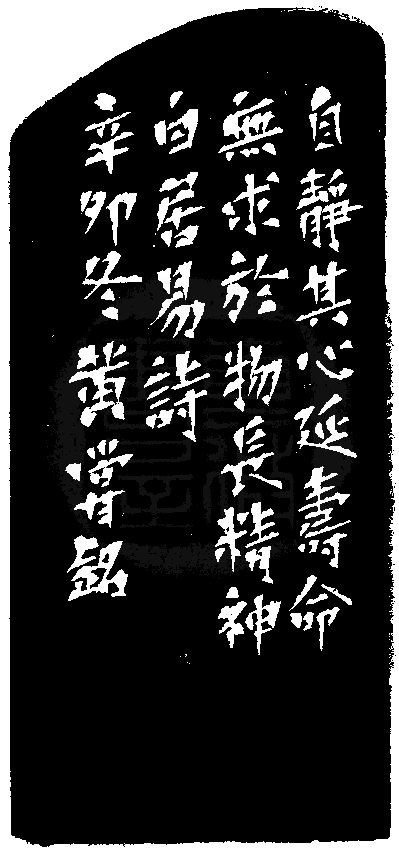 自靜其心延壽命
無求於物長精神
白居易詩
辛卯冬黃嘗銘